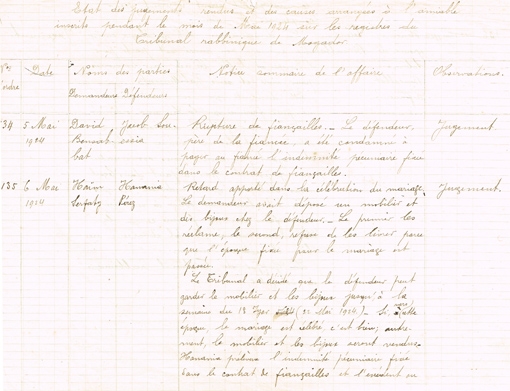 Etat des jugements rendus et des causes arrangées à l'amiable
inscrit pendant le mois de Mai 1924 sur les registres du
Tribunal rabbinique de Mogador
Nos d'ordre Date Noms des parties Notice sommaire de l'affaire Observations.
Demandeurs Défendeurs
34 5 Mai David Jacob Rupture de fiançailles. — Le défendeur, Jugement.
1924 père de la fiancée, a été condamné à
payer au jeune l'indemnité pécuniaire fixée
dans le contrat de fiançailles.
135 6 Mai Haïm Hanania Retard apporté dans la célébration du mariage. Jugement.
1924 Pérez Le demandeur avait déposé un mobilier et
des bijoux chez le défendeur. — Le premier les
réclame, le second, refuse de les livrer parce
que l'époque fixée pour le mariage est
passée.
Le Tribunal a décidé que le défendeur peut
garder le mobilier et les bijoux jusqu'à la
semaine du 18 Iyar (22 Mai 1924). — Si, à cette
époque, le mariage est célébré, c'est bien; autre-
ment, le mobilier et les bijoux seront vendus.
Hanania prélèvera l'indemnité pécuniaire fixée
dans le contrat de fiançailles et l'excédent ou